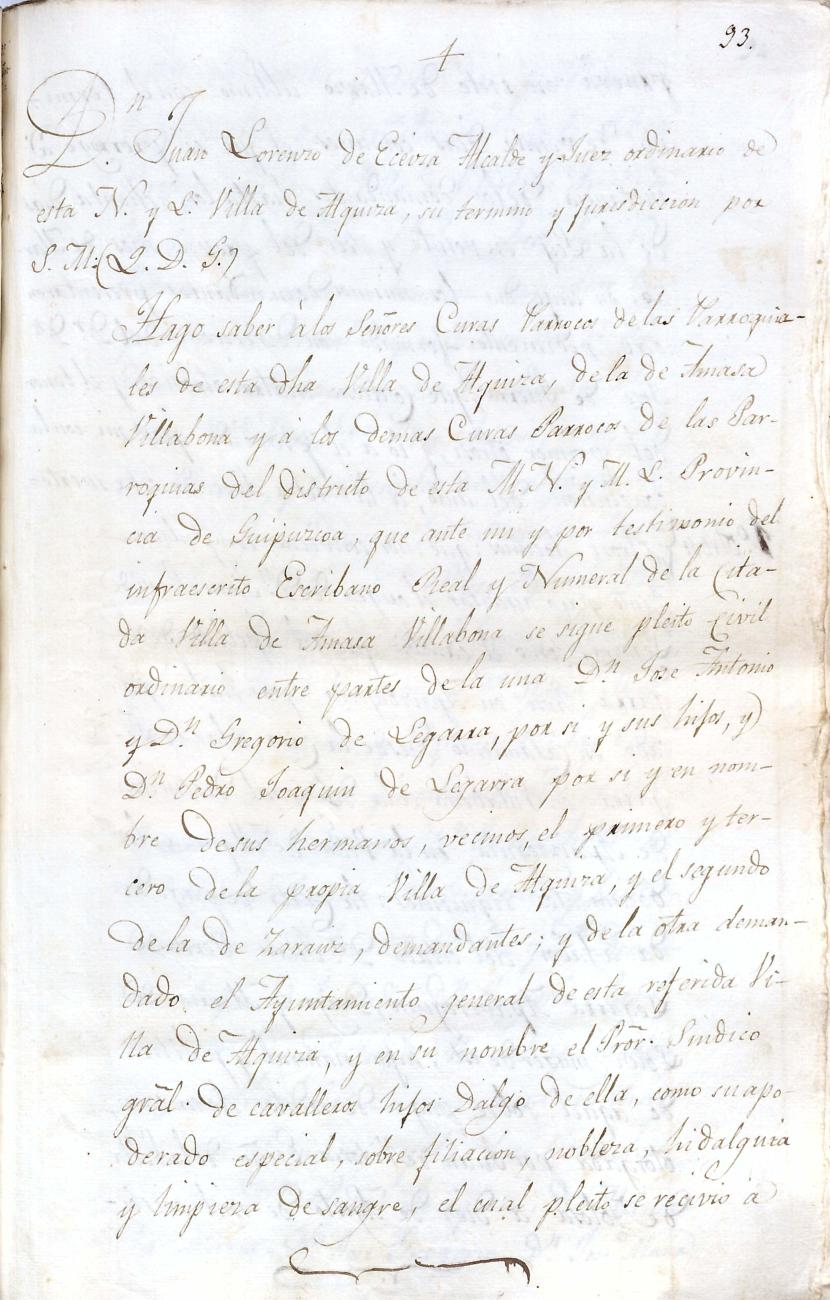 93.
D.n Juan Lorenzo de Eceiza Alcalde y Juez ordinario de
esta N. y L. Villa de Alquiza, su termino y Jurisdiccion por
S. M. (Q. D. G.)
Hago saber a los Señores Curas Parrocos de las Parroquia-
les de esta dha Villa de Alquiza, de la de Amasa
Villabona y a los demas Curas Parrocos de las Par-
roquias del districto de esta M. N. y M. L. Provin-
cia de Guipuzcoa, que ante mi y por testimonio del
infraescrito Escribano Real y Numeral de la Cita-
da Villa de Amasa Villabona se sigue pleito Civil
ordinario entre partes de la una Dn Jose Antonio
y D.n Gregorio de Legarra, por si y sus hijos, y
Dn Pedro Joaquin de Legarra por si y en nom-
bre de sus hermanos, vecinos, el primero y ter-
cero de la propia Villa de Alquiza, y el segundo
de la de Zarauz, demandantes; y de la otra deman-
dado el Ayuntamiento general de esta referida Vi-
lla de Alquiza, y en su nombre el Pror. Sindico
gral. de cavalleros hijos Dalgo de ella, como su apo-
derado especial, sobre filiacion, nobleza, hidalguia
y limpieza de sangre, el cual pleito se recivio à